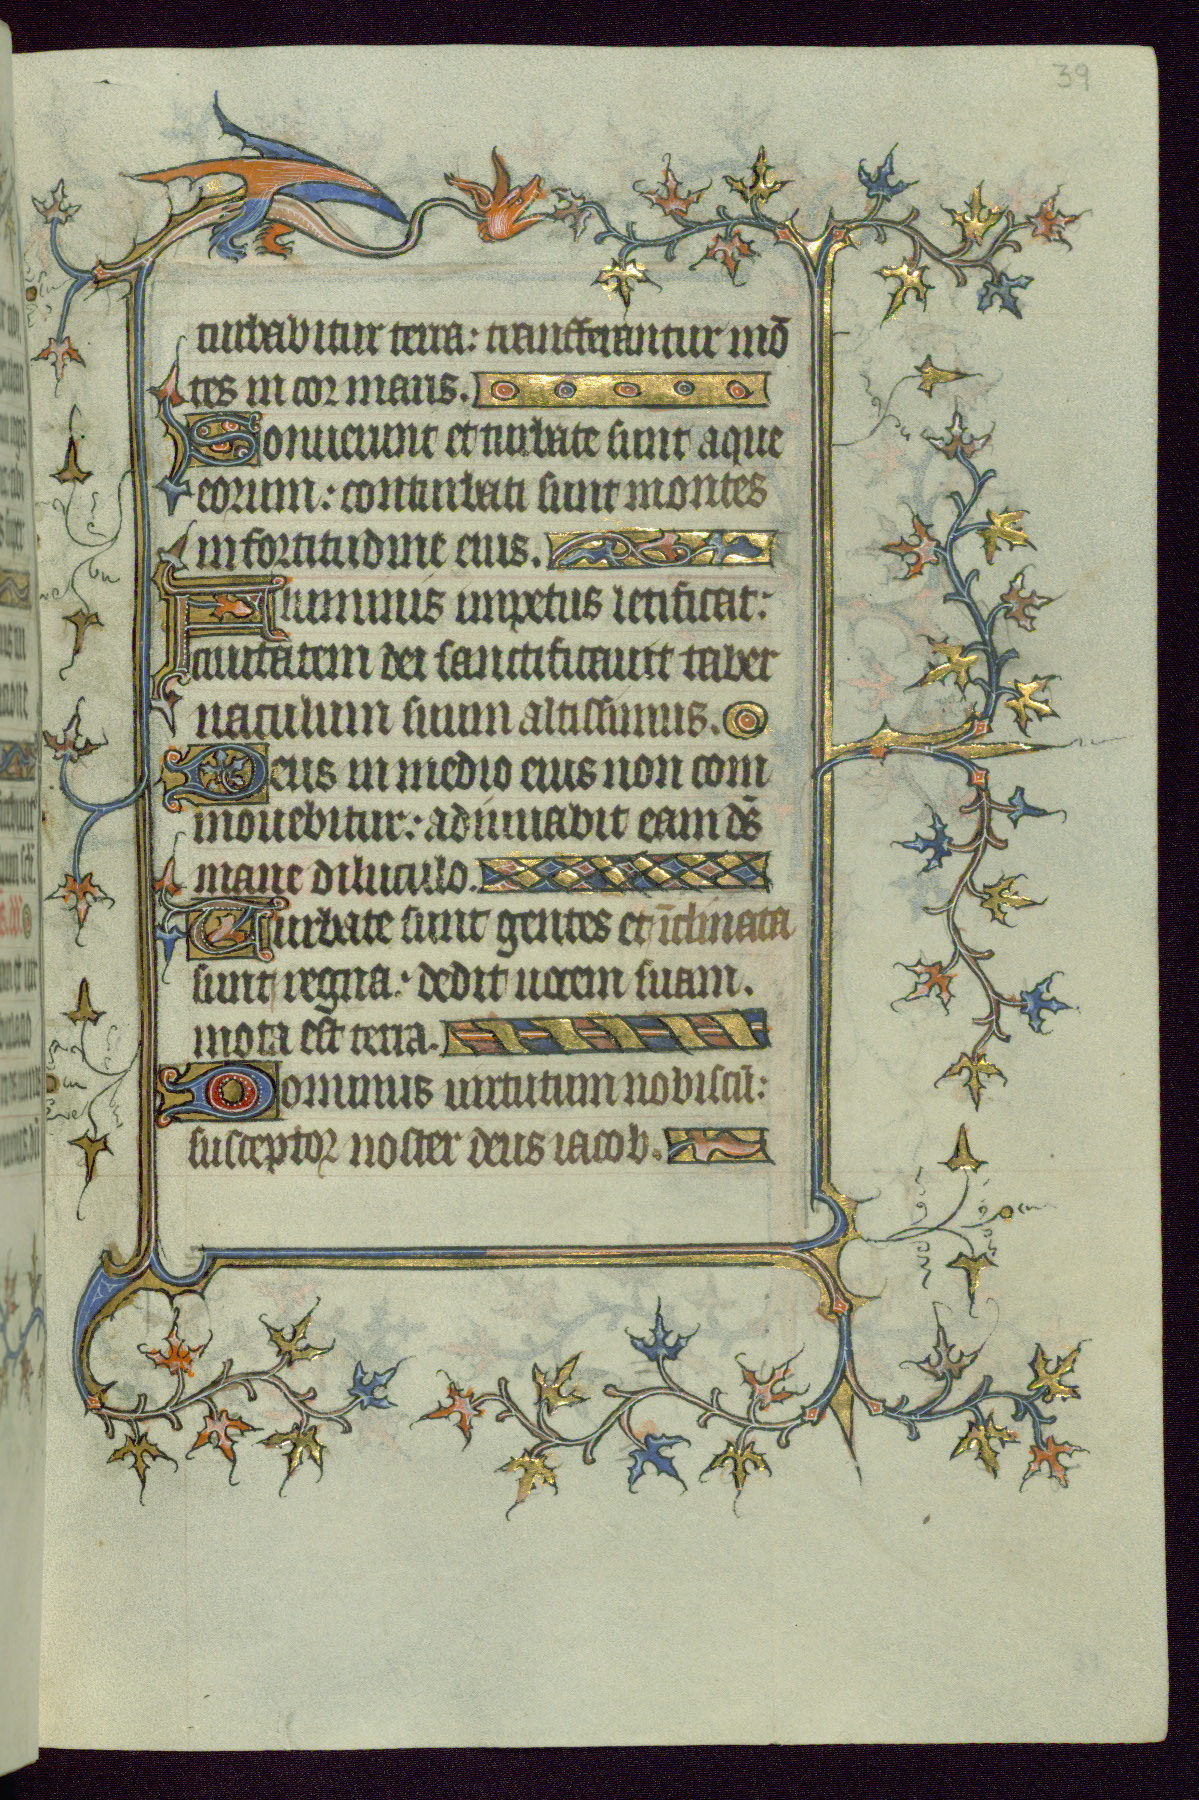 39
turbabitur terra: transferantur mō
tes in cor maris.
Sonuerunt et turbate sunt aque
eorum: conturbati sunt montes
in fortitudine eius.
Fluminis impetus letificat:
ciuitatem dei sanctificauit taber
naculum suum altissimus.
Deus in medio eius non com
mouebitur: adiuuabit eam dꝰs
mane diluculo.
Turbate sunt gentes et īclinata
sunt regna: dedit uocem suam.
mota est terra.
Dominus uirtutum nobiscū:
susceptor noster deus iacob.